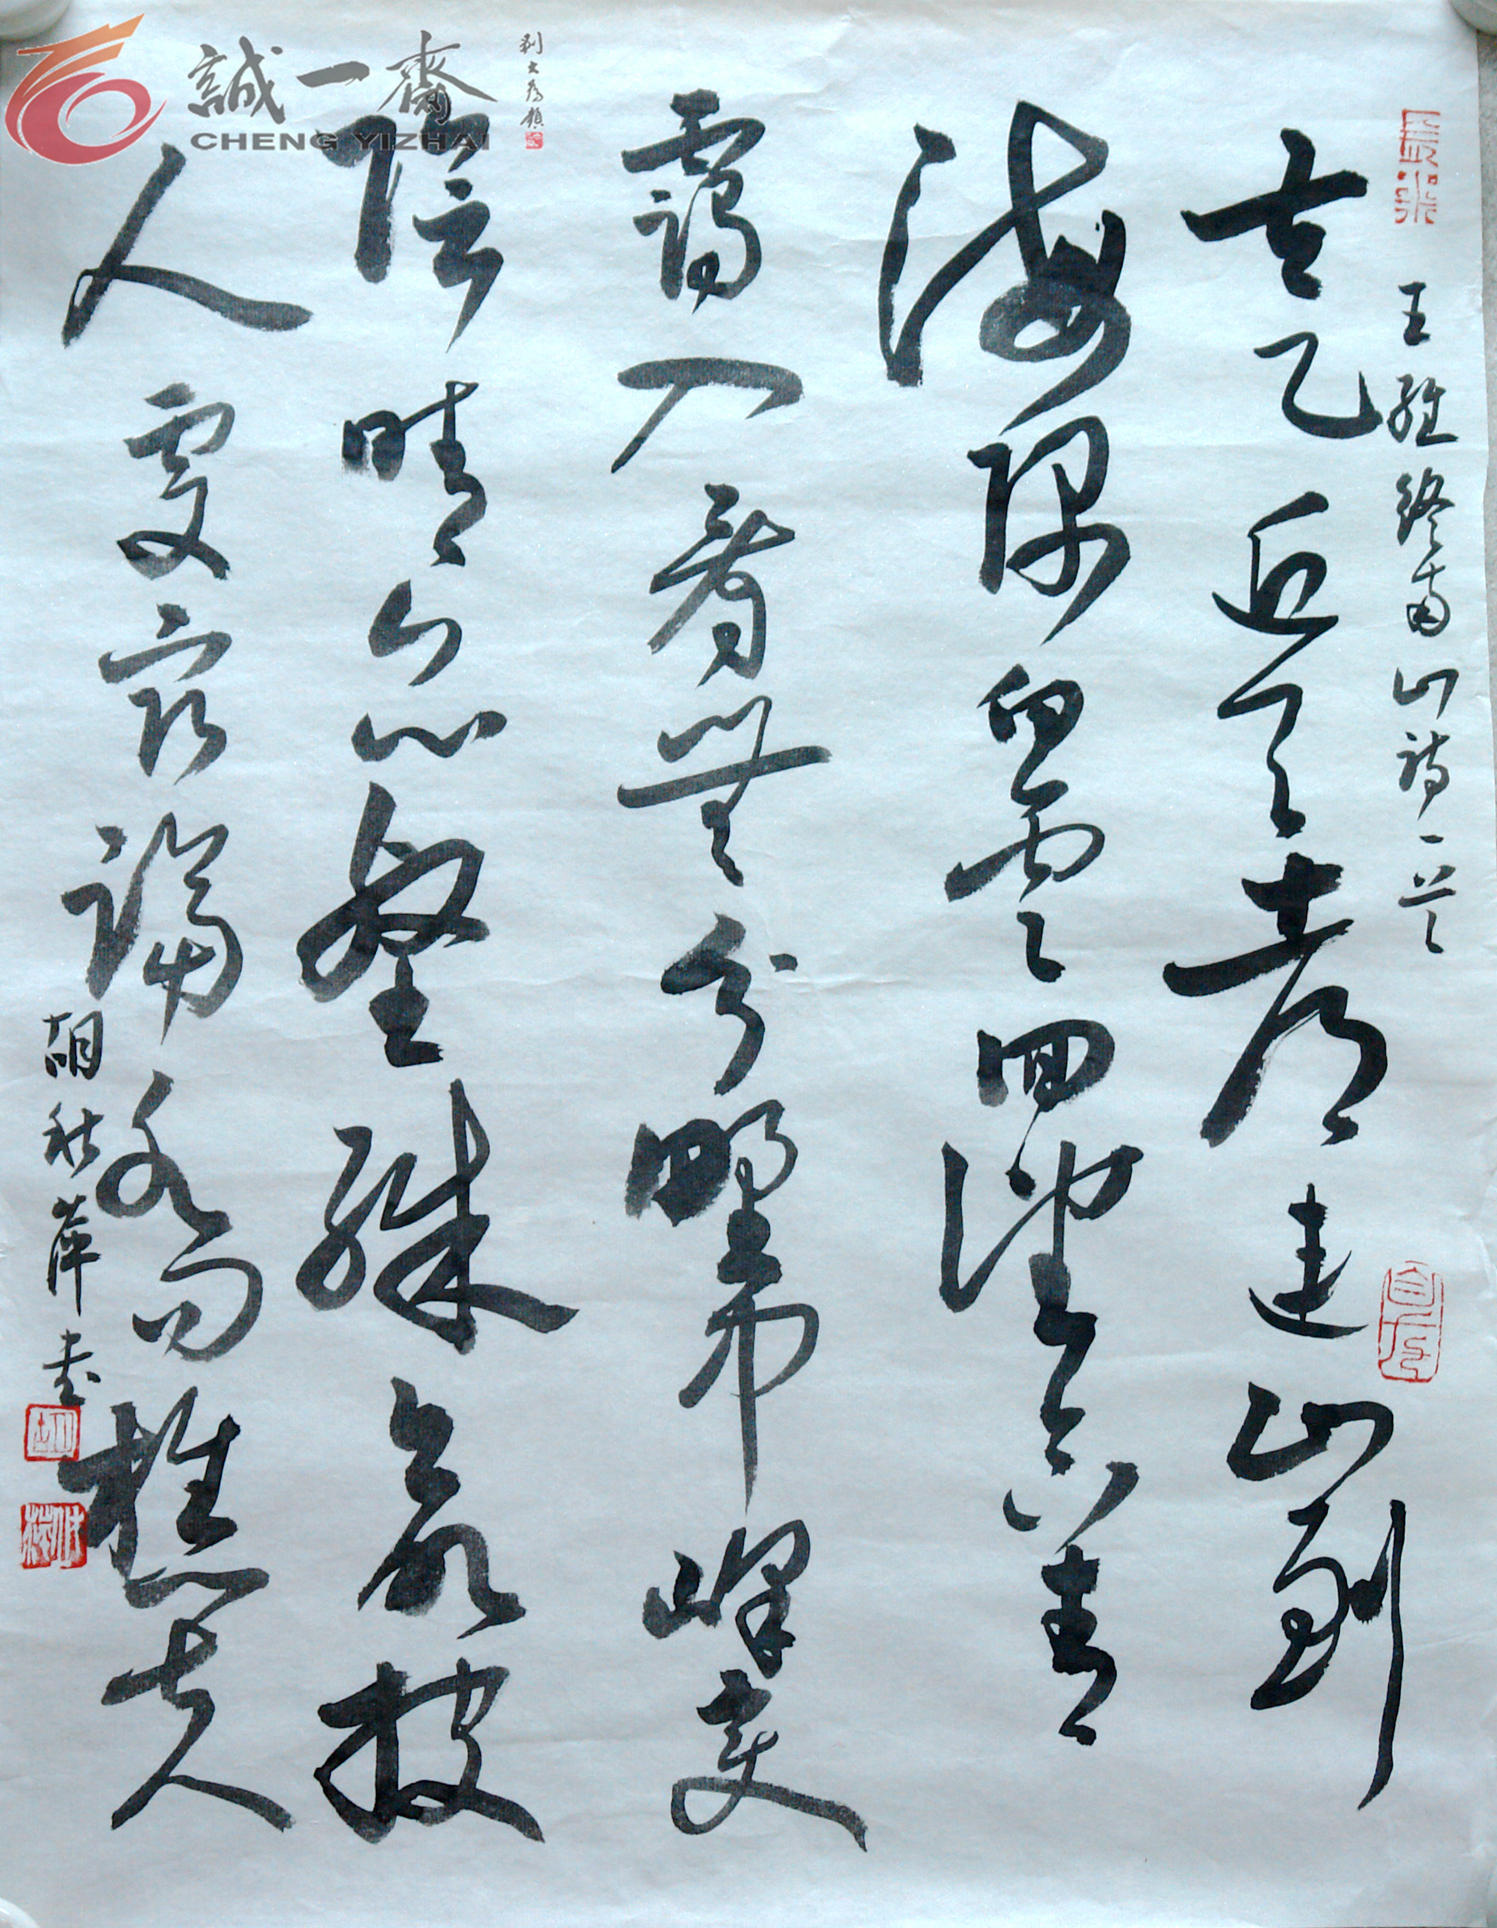 誠一齋
CHENG YIZHAI
王維終南山詩一首
太乙近天都連山到
海隅白雲回望合青
靄入看無分野中峰變
陰晴众壑殊欲投
人處宿隔水問樵夫
胡秋萍書